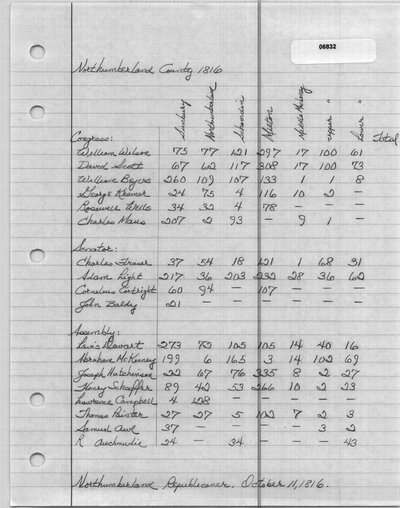 06832
Northumberland County 1816
Sunbury Northumberland Schamokin Milton Middle Mahonoy Upper " Lower "
Congress: Total
William Wilson 75 77 121 297 17 100 61
David Scott 67 62 117 308 17 100 73
William Beyers 260 109 107 133 1 1 8
George Kremer 24 75 4 116 10 2 -
Rosewell Wells 34 32 4 78 - - -
Charles Maus 207 2 93 - 9 1 -
Senator:
Charles Fraser 37 54 18 121 1 68 31
Adam Light 217 36 203 232 28 36 62
Cornelius Cortright 60 94 - 107 - - -
John Baldy 21 - - - - - -
Assembly:
Lewis Dewart 273 72 105 105 14 40 16
Abraham McKinney 199 6 165 3 14 102 69
Joseph Hutchinson 22 67 76 335 8 2 27
Henry Schaeffer 89 42 53 266 10 2 23
Lawrence Campbell 4 128 - - - - -
Thomas Painter 27 27 5 102 7 2 3
Samuel Awl 37 - - - - 3 2
R Auchmudie 24 - 34 - - - 43
Northumberland Republicaner. October 11, 1816.